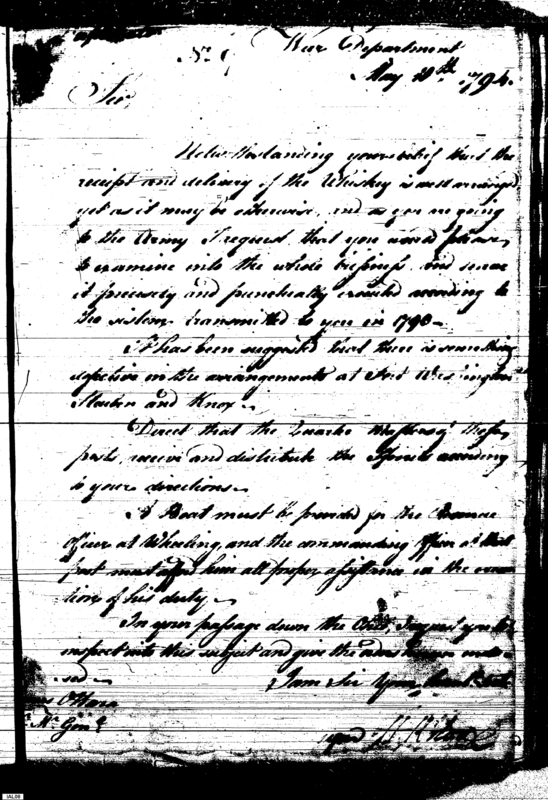 No. 9 War Department
May 11th 1794.
Sir,
Notwithstanding your belief that the
receipt and delivery of the Whiskey is well arranged
yet as it may be otherwise, and as you are going
to the Army I request that you would please
to examine into the whole business, and
it precisely and punctually executed according to
the system transmitted to you in 1793.
It has been suggested that there is something
defective in the arrangements at Fort Washington
Steuben and Knox.
Direct that the Quarter Masters of those
posts, receive and distribute the Spirits according
to your directions.
A Boat must be provided for the
officer at Wheeling, and the commanding Officer at that
post must afford him all proper assistance in the execu
tion of his duty.
In your passage down the Ohio, I request you to
inspect into this subject and give the
I am Sir Your
O'Hara
Mr. Genl.
signed H Knox
IALDE